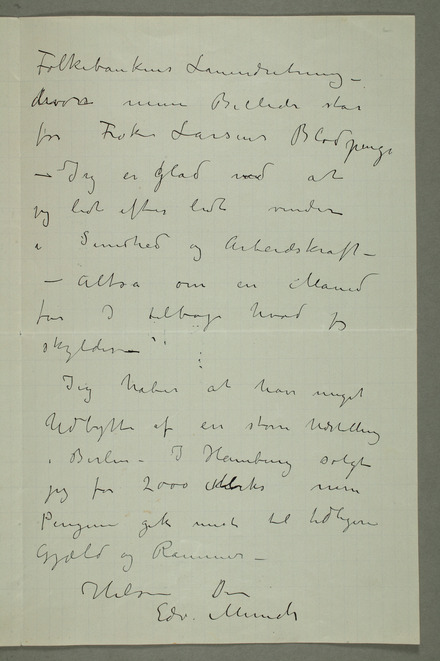 Folkebankens Laneindretning –
hvors mine Billeder står
for Frøken Larsens Blodpenge
– Jeg er Glad ved at
jeg lidt efter lidt vinder
i Sundhed og Arbeidskraft –
– Altsa om en Maaned
får I tilbage hvad jeg
skylder –
Jeg håber at have noget
Udbytte af en større Udstilling
i Berlin – I Hamburg solgte
jeg for 2000 Marks men
Pengene gik mest til tidligere
Gjæld og Rammer –
Hilsen Din
Edv. Munch